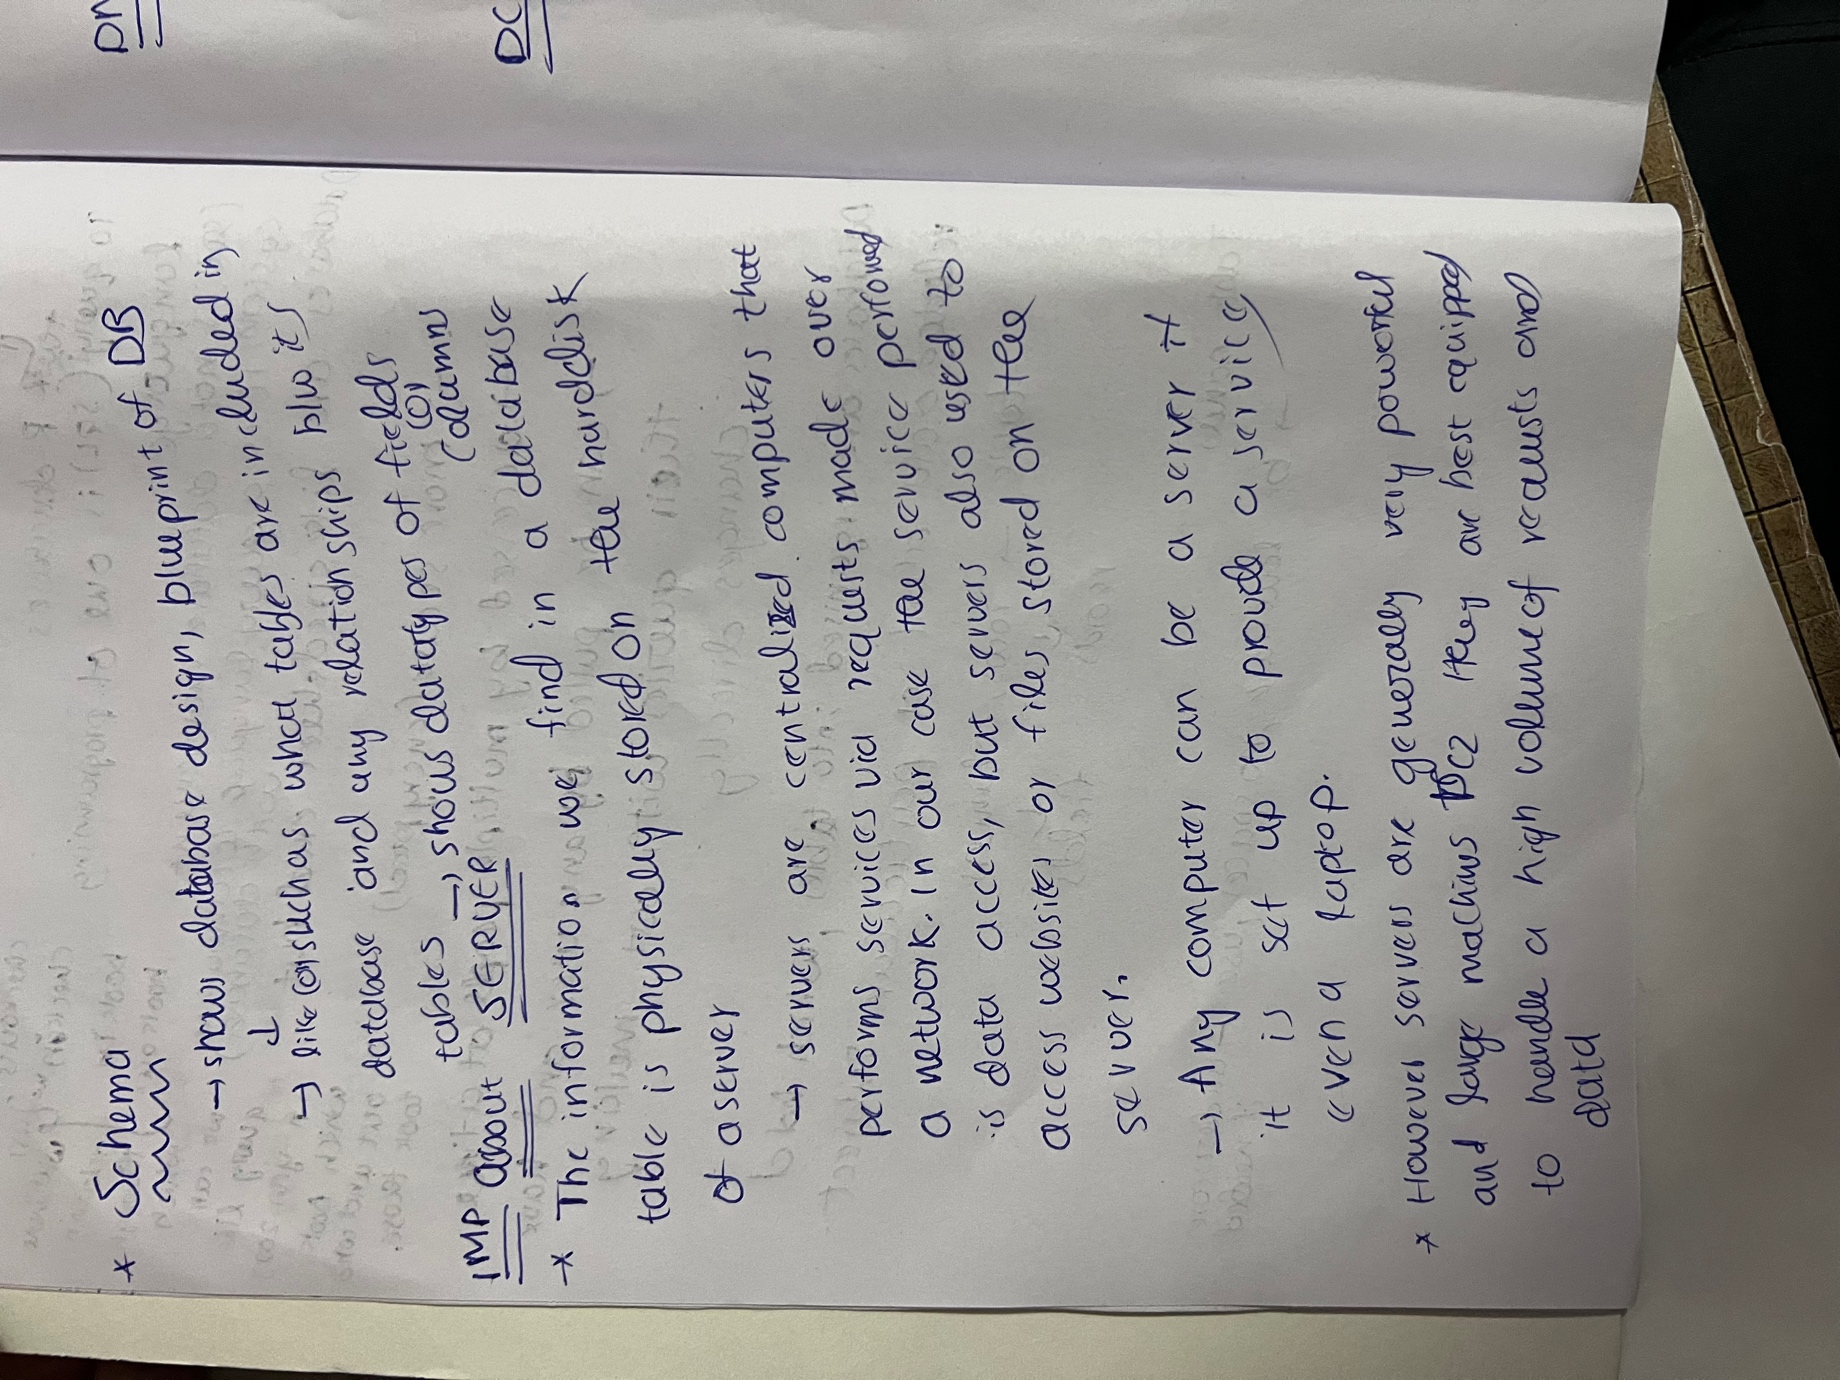 * Schema
→ shows database design, blueprint of DB
↓
→ like (or) such as what tables are included in
database and any relationships b/w its
tables → shows datatypes of fields
(or)
columns
IMP about SERVER
* The information we find in a database
table is physically stored on the harddisk
of a server
→ servers are centralized computers that
performs services via requests made over
a network. In our case the service perfomed
is data access, but servers also used to
access websites or files stored on the
server.
→ Any computer can be a server it
it is set up to provide a service
even a laptop.
* However servers are generally very powerful
and large machines they are best equipped
to handle a high volume of requests and
data
DC